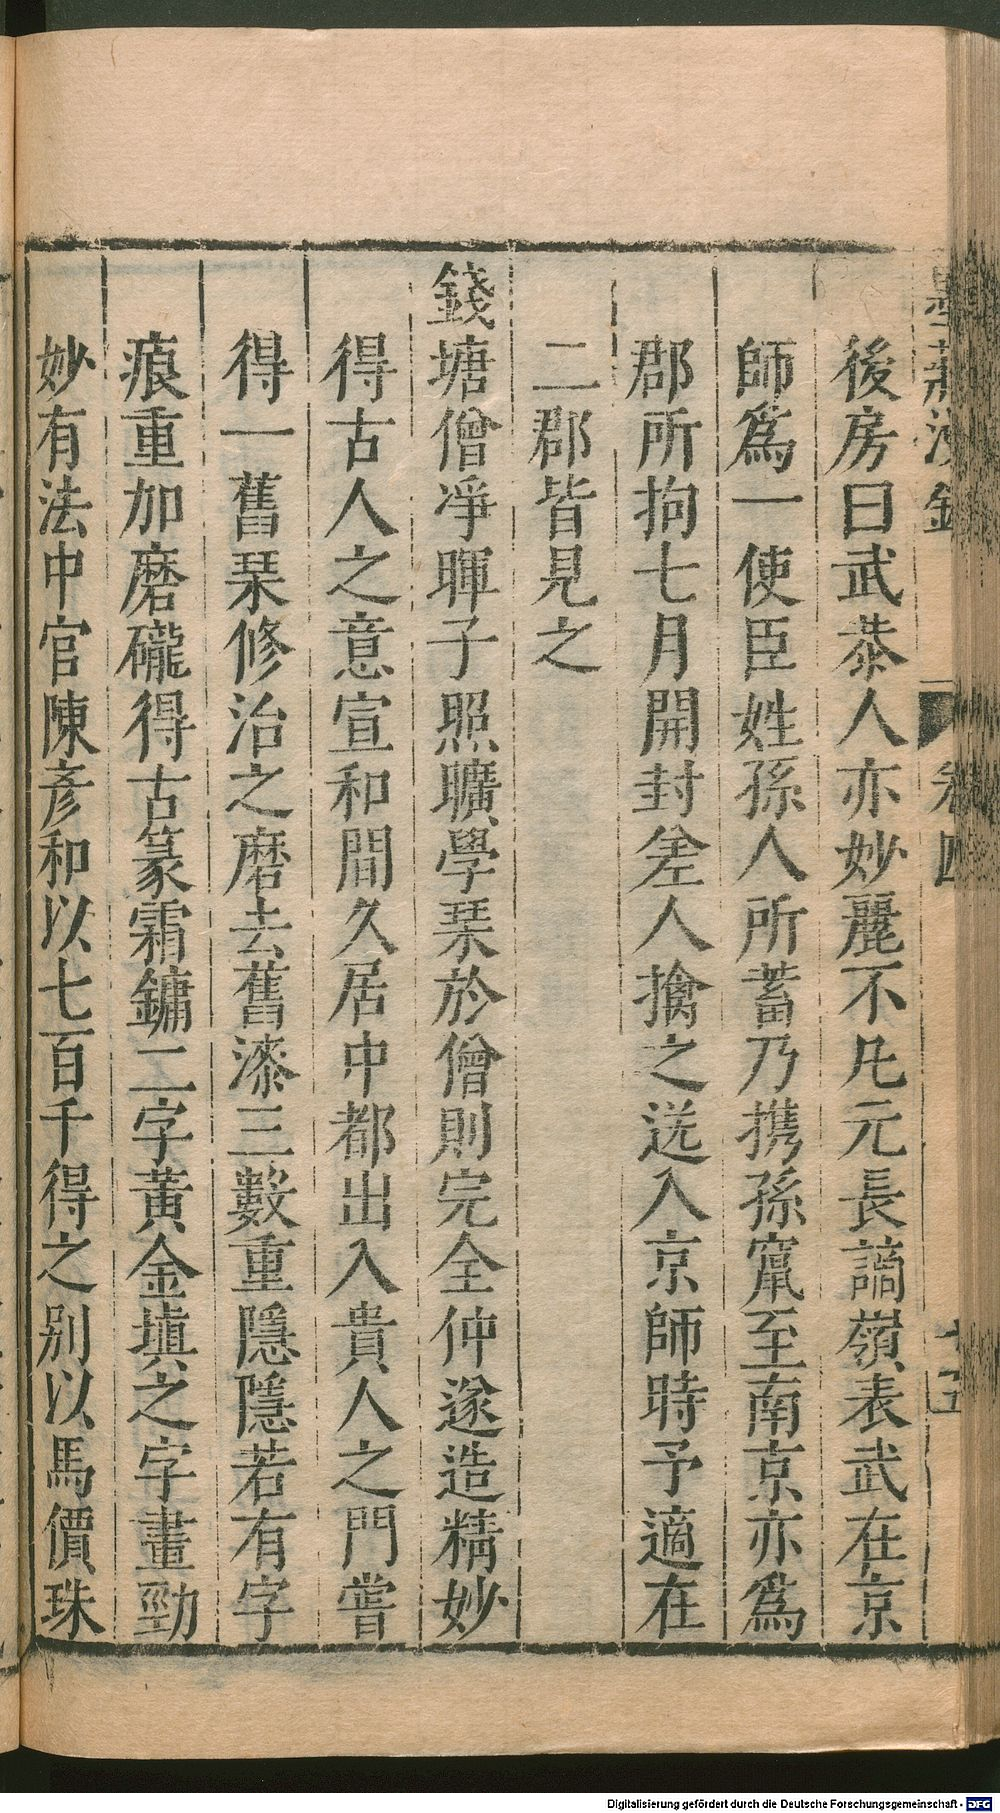 後房曰武恭人亦妙麗不凡元長謫嶺表武在京
師爲一使臣姓孫人所蓄乃携孫竄至南京亦爲
郡所拘七月開封差人擒之送入京師時予適在
二郡皆見之
錢塘僧凈暉子照曠學琹於僧則完全仲遂造精妙
得古人之意宣和間久居中都出入貴人之門嘗
得一舊琹修治之磨去舊漆三數重隱隱若有字
痕重加磨礲得古篆霜鏞二字黃金塡之字畫勁
妙有法中官陳彥和以七百千得之别以馬價珠
卷四
Digitalisierung gefördert durch die Deutsche Forschungsgemeinschaft - DFG